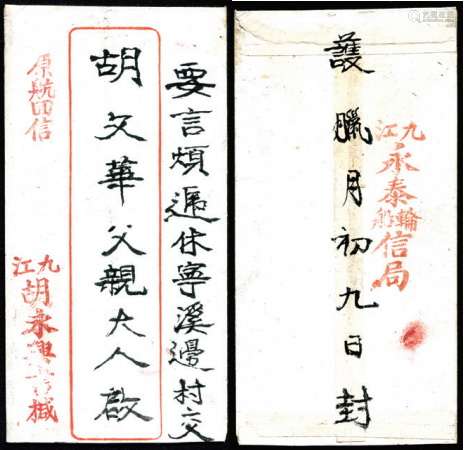 要言煩遞休寧溪邊村交
胡文華父親大人啟
九江
胡永興緘
九江
永泰輪船信局
護臘月初九日封